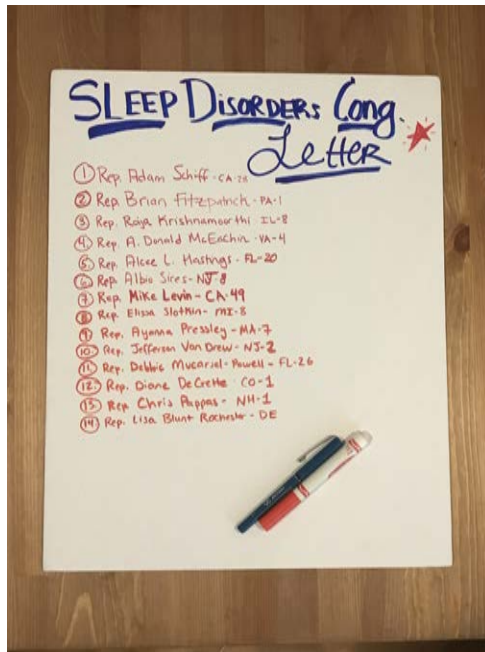 SLEEP DISORDERS Cong.
LETTER
1 Rep. Adam Schiff - CA-28
2 Rep. Brian Fitzpatrick - PA-1
3 Rep. Raja Krishnamoorthi IL-8
4. Rep. A. Donald McEachin VA-4
5. Rep. Alcee L. Hastings - FL-20
6 Rep. Albio Sires - NJ-8
7 Rep. Mike Levin - CA-49
8 Rep. Elissa Slotkin - MI-8
9 Rep. Ayanna Pressley - MA-7
10. Rep. Jefferson Van Drew - NJ-2
11. Rep. Debbie Mucarsel-Powell - FL-26
12. Rep. Diane DeGette CO-1
13. Rep Chris Pappas - NH-1
14 Rep. Lisa Blunt Rochester - DE